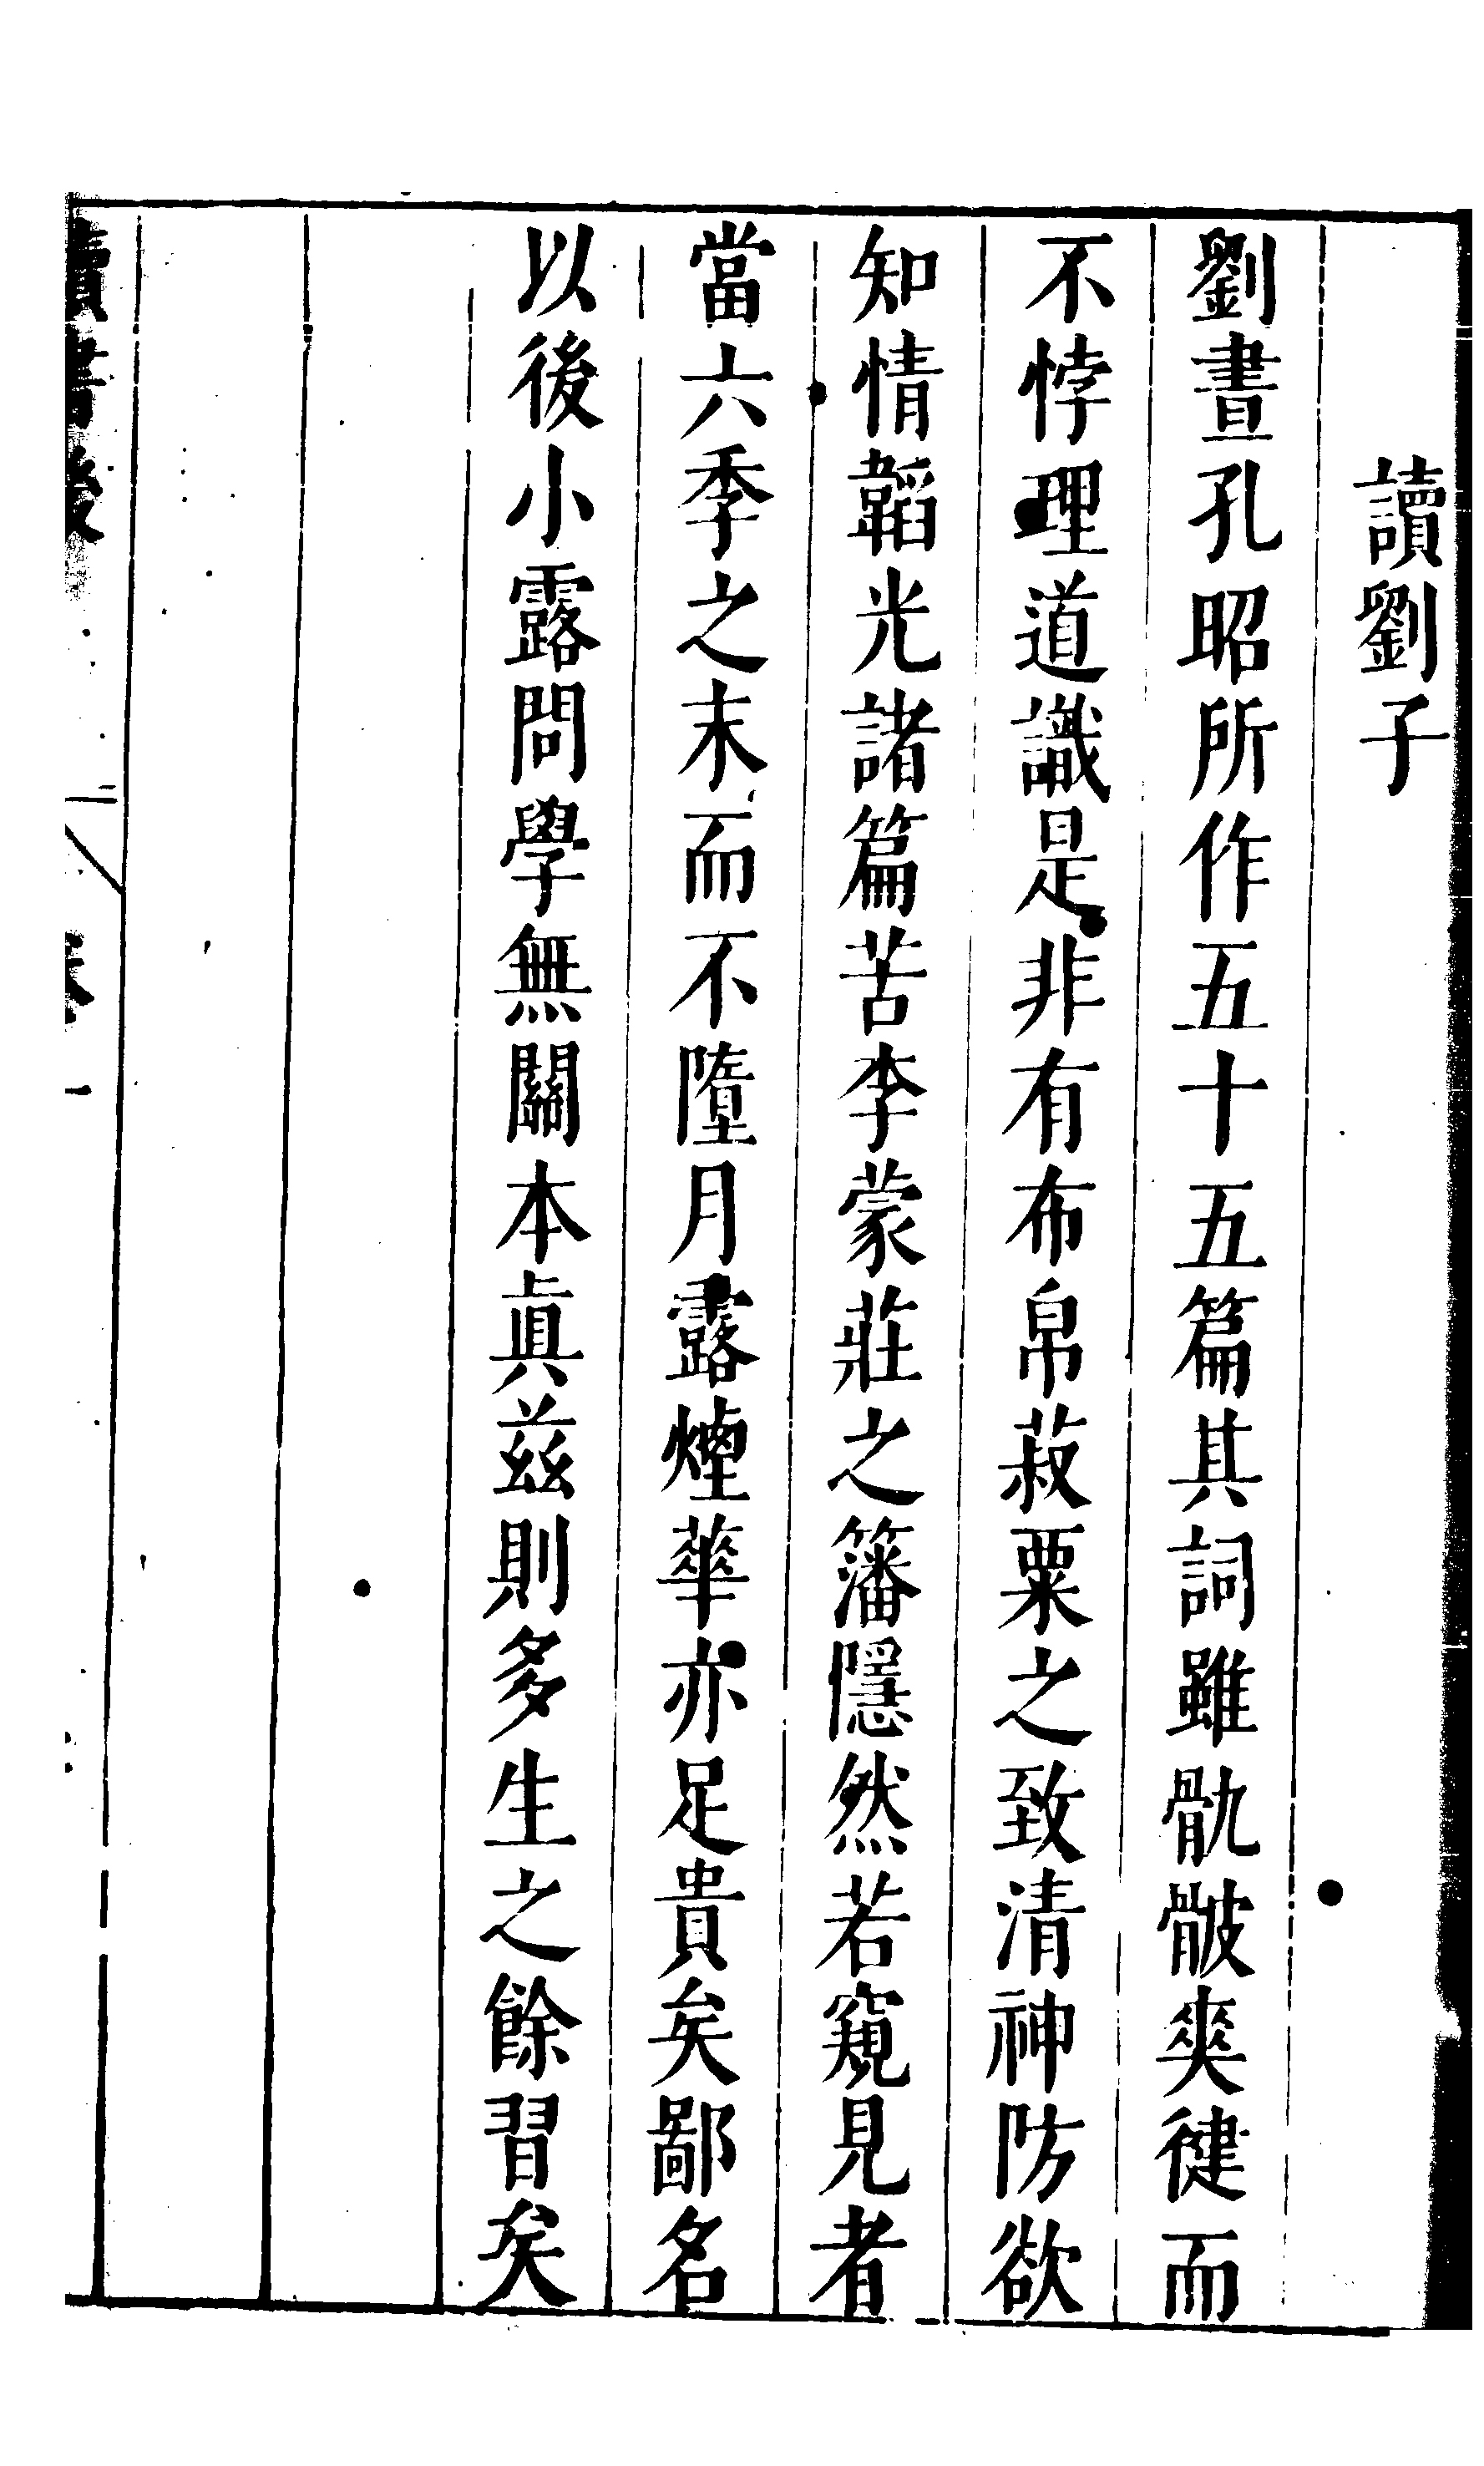 讀劉子
劉晝孔昭所作五十五篇其詞雖骩骳爽徤而
不悖理道識是非有布帛菽粟之致清神防欲
知情韜光諸篇苦李蒙莊之籓隱然若窺見者
當六季之末而不墮月露煙華亦足貴矣鄙名
以後小露問學無關本眞茲則多生之餘習矣
讀書後 卷一